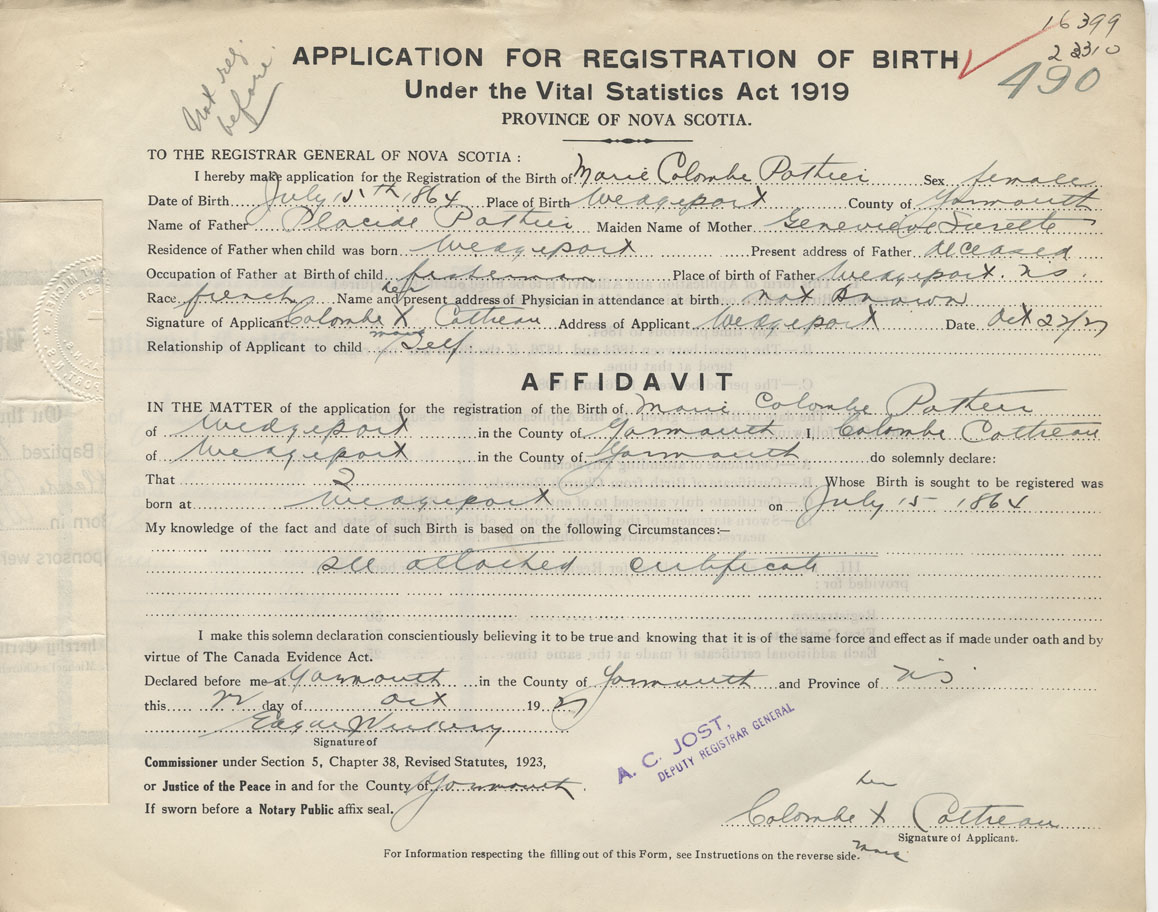 16399
23310
490
Not reg. before.
APPLICATION FOR REGISTRATION OF BIRTH
Under the Vital Statistics Act 1919
PROVINCE OF NOVA SCOTIA.
TO THE REGISTRAR GENERAL OF NOVA SCOTIA :
I hereby make application for the Registration of the Birth of Marie Colombe Pothier Sex female
Date of Birth July 15th 1864 Place of Birth Wedgeport County of Yarmouth
Name of Father Placide Pothier Maiden Name of Mother Genevieve Surette
Residence of Father when child was born Wedgeport Present address of Father deceased
Occupation of Father at Birth of child fisherman Place of birth of Father Wedgeport. NS.
Race french Name and present address of Physician in attendance at birth not known
Signature of Applicant Colombe her X mark Cottreau Address of Applicant Wedgeport Date Oct 22/27
Relationship of Applicant to child Self
AFFIDAVIT
IN THE MATTER of the application for the registration of the Birth of Marie Colombe Pothier
of Wedgeport in the County of Yarmouth I, Colombe Cottreau
of Wedgeport in the County of Yarmouth do solemnly declare:
That I Whose Birth is sought to be registered was
born at Wedgeport on July 15 1864
My knowledge of the fact and date of such Birth is based on the following Circumstances:—
see attached certificate
I make this solemn declaration conscientiously believing it to be true and knowing that it is of the same force and effect as if made under oath and by
virtue of The Canada Evidence Act.
Declared before me at Yarmouth in the County of Yarmouth and Province of NS
this 22 day of Oct 1927
Signature of
Commissioner under Section 5, Chapter 38, Revised Statutes, 1923,
or Justice of the Peace in and for the County of Yarmouth.
If sworn before a Notary Public affix seal.
A. C. JOST,
DEPUTY REGISTRAR GENERAL
Colombe her X mark Cottreau
Signature of Applicant.
For Information respecting the filling out of this Form, see Instructions on the reverse side.